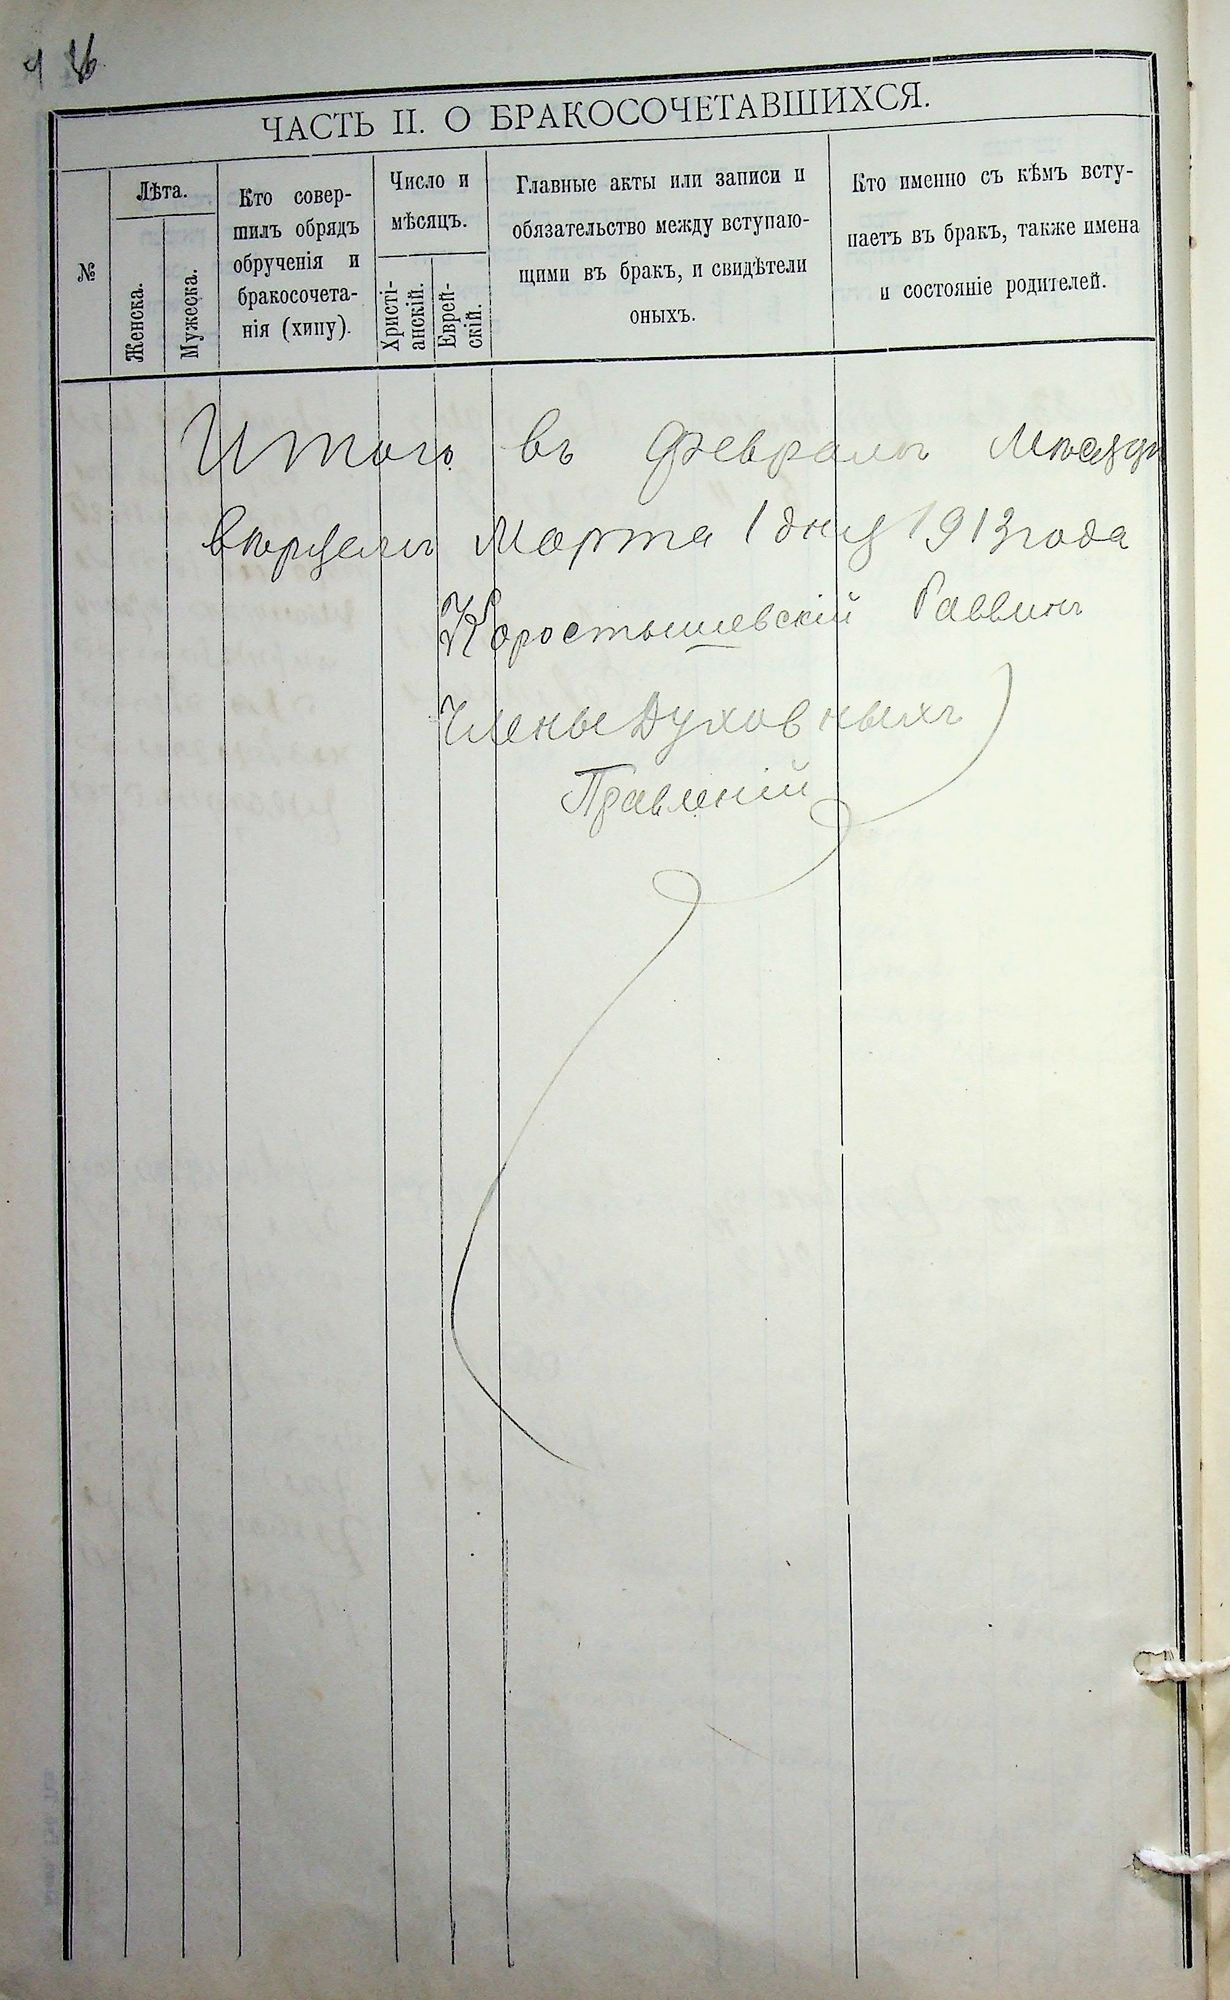 ЧАСТЬ II. О БРАКОСОЧЕТАВШИХСЯ.
№
Лѣта.
Женска.
Мужеска.
Кто совер-
шилъ обрядъ
обрученія и
бракосочета-
нія (хипу).
Число и
мѣсяцъ.
Христі-
анскій.
Еврей-
скій.
Главные акты или записи и
обязательство между вступаю-
щими въ бракъ, и свидѣтели
оныхъ.
Кто именно съ кѣмъ всту-
паетъ въ бракъ, также имена
и состояніе родителей.
Итого въ Февралѣ Мѣсяцѣ
Марта 1 дня 1913 года
Коростышевскій Раввинъ
Члены Духовныхъ
Правленій